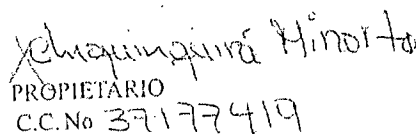 Chiquinquirá Minorta
PROPIETARIO
C.C. No 37177419